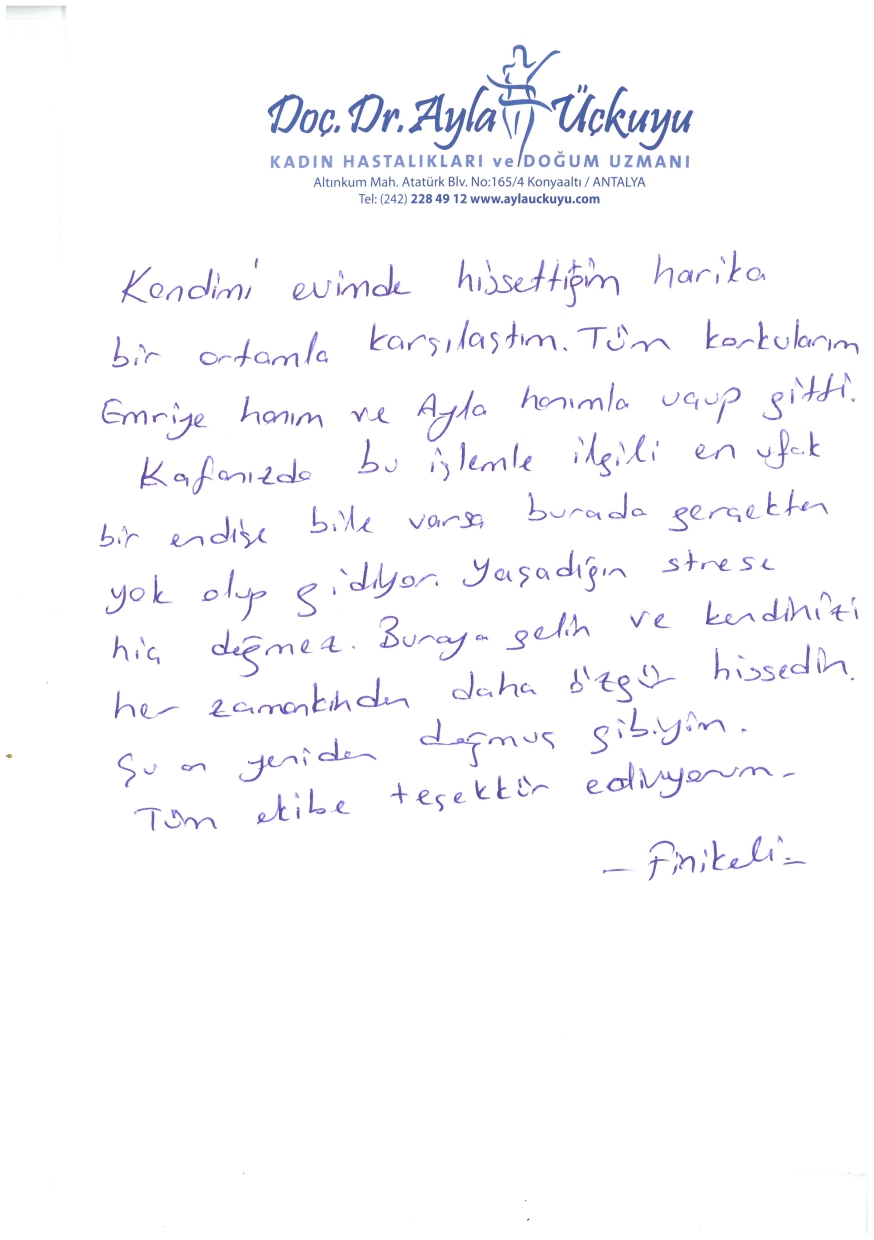 Doç. Dr. Ayla Üçkuyu
KADIN HASTALIKLARI ve DOĞUM UZMANI
Altınkum Mah. Atatürk Blv. No:165/4 Konyaaltı / ANTALYA
Tel: (242) 228 49 12 www.aylauckuyu.com
Kendimi evimde hissettiğim harika
bir ortamla karşılaştım. Tüm korkularım
Emriye hanım ve Ayla hanımla uçup gitti.
Kafanızda bu işlemle ilgili en ufak
bir endişe bile varsa burada gerçekten
yok olup gidiyor. Yaşadığın strese
hiç değmez. Buraya gelin ve kendinizi
her zamankinden daha özgür hissedin.
Şu an yeniden doğmuş gibiyim.
Tüm ekibe teşekkür ediyorum.
- Finikeli -